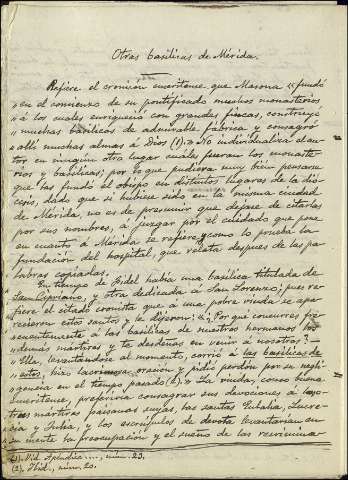 Otras basílicas de Mérida.
Refiere el cronicón emeritense que Masona "fundó
"en el comienzo de su pontificado muchos monasterios
"á los cuales enriqueció con grandes fincas, construyó
"muchas basílicas de admirable fábrica y consagró
"allí muchas almas á Dios (1)." No individualiza el au-
tor en ningún otro lugar cuales fueron los monaste-
rios y basílicas; por lo que pudiera muy bien pensarse
que las fundó el obispo en distintos lugares de la dió-
cesis, dado que si hubiese sido en la misma ciudad
de Mérida, no es de presumir que dejase de citarlas
por sus nombres, á juzgar por el cuidado que pone
en cuanto á Mérida se refiere y como lo prueba la
fundación del hospital, que relata despues de las pa-
labras copiadas.
En tiempo de Fidel había una basílica titulada de
San Cipriano, y otra dedicada á San Lorenzo; pues re-
fiere el citado cronista que á una pobre viuda se apa-
recieron estos santos y la dijeron: "¿Por qué concurres fre-
"cuentemente á las basílicas de nuestros hermanos los
"demás mártires y te desdeñas en venir á nosotros? -
"Ella, levantándose al momento, corrió á las basílicas de
"estos, hizo lacrimosa oración y pidió perdon por su negli-
"gencia en el tiempo pasado (2)." La viuda, como buena
Emeritense, preferiría consagrar sus devociones á las otras
mártires paisanas suyas, las santas Eulalia, Lucre-
cia y Julia, y los escrúpulos de devota levantarían en
su mente la preocupación y el sueño de las reconvencio-
(1). Vid. Apéndice ..., núm. 23.
(2). Ibid., núm. 20.